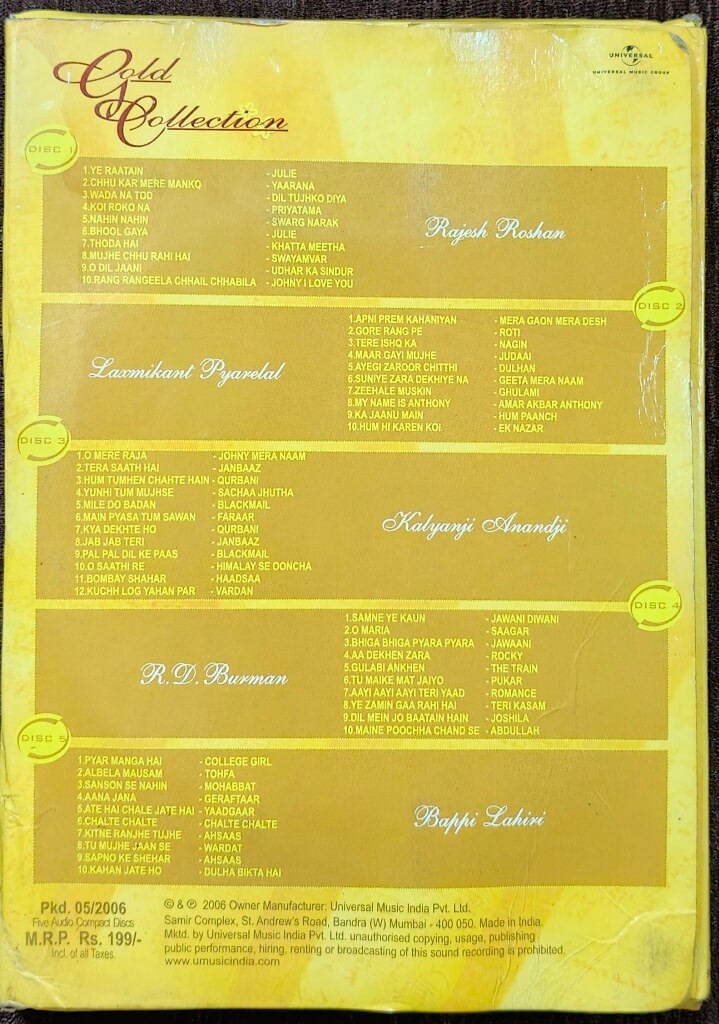 Gold
Collection
UNIVERSAL
UNIVERSAL MUSIC GROUP
DISC 1
1.YE RAATAIN - JULIE
2.CHHU KAR MERE MANKO - YAARANA
3.WADA NA TOD - DIL TUJHKO DIYA
4.KOI ROKO NA - PRIYATAMA
5.NAHIN NAHIN - SWARG NARAK
6.BHOOL GAYA - JULIE
7.THODA HAI - KHATTA MEETHA
8.MUJHE CHHU RAHI HAI - SWAYAMVAR
9.O DIL JAANI - UDHAR KA SINDUR
10.RANG RANGEELA CHHAIL CHHABILA - JOHNY I LOVE YOU
Rajesh Roshan
DISC 2
Laxmikant Pyarelal
1.APNI PREM KAHANIYAN - MERA GAON MERA DESH
2.GORE RANG PE - ROTI
3.TERE ISHQ KA - NAGIN
4.MAAR GAYI MUJHE - JUDAAI
5.AYEGI ZAROOR CHITTHI - DULHAN
6.SUNIYE ZARA DEKHIYE NA - GEETA MERA NAAM
7.ZEEHALE MUSKIN - GHULAMI
8.MY NAME IS ANTHONY - AMAR AKBAR ANTHONY
9.KA JAANU MAIN - HUM PAANCH
10.HUM HI KAREN KOI - EK NAZAR
DISC 3
1.O MERE RAJA - JOHNY MERA NAAM
2.TERA SAATH HAI - JANBAAZ
3.HUM TUMHEN CHAHTE HAIN - QURBANI
4.YUNHI TUM MUJHSE - SACHAA JHUTHA
5.MILE DO BADAN - BLACKMAIL
6.MAIN PYASA TUM SAWAN - FARAAR
7.KYA DEKHTE HO - QURBANI
8.JAB JAB TERI - JANBAAZ
9.PAL PAL DIL KE PAAS - BLACKMAIL
10.O SAATHI RE - HIMALAY SE OONCHA
11.BOMBAY SHAHAR - HAADSAA
12.KUCHH LOG YAHAN PAR - VARDAN
Kalyanji Anandji
DISC 4
R.D. Burman
1.SAMNE YE KAUN - JAWANI DIWANI
2.O MARIA - SAAGAR
3.BHIGA BHIGA PYARA PYARA - JAWAANI
4.AA DEKHEN ZARA - ROCKY
5.GULABI ANKHEN - THE TRAIN
6.TU MAIKE MAT JAIYO - PUKAR
7.AAYI AAYI AAYI TERI YAAD - ROMANCE
8.YE ZAMIN GAA RAHI HAI - TERI KASAM
9.DIL MEIN JO BAATAIN HAIN - JOSHILA
10.MAINE POOCHHA CHAND SE - ABDULLAH
DISC 5
1.PYAR MANGA HAI - COLLEGE GIRL
2.ALBELA MAUSAM - TOHFA
3.SANSON SE NAHIN - MOHABBAT
4.AANA JANA - GERAFTAAR
5.ATE HAI CHALE JATE HAI - YAADGAAR
6.CHALTE CHALTE - CHALTE CHALTE
7.KITNE RANJHE TUJHE - AHSAAS
8.TU MUJHE JAAN SE - WARDAT
9.SAPNO KE SHEHAR - AHSAAS
10.KAHAN JATE HO - DULHA BIKTA HAI
Bappi Lahiri
Pkd. 05/2006
Five Audio Compact Discs
M.R.P. Rs. 199/-
Incl. of all Taxes.
© & ℗ 2006 Owner Manufacturer: Universal Music India Pvt. Ltd.
Samir Complex, St. Andrew's Road, Bandra (W) Mumbai - 400 050. Made in India.
Mktd. by Universal Music India Pvt. Ltd. unauthorised copying, usage, publishing
public performance, hiring, renting or broadcasting of this sound recording is prohibited.
www.umusicindia.com